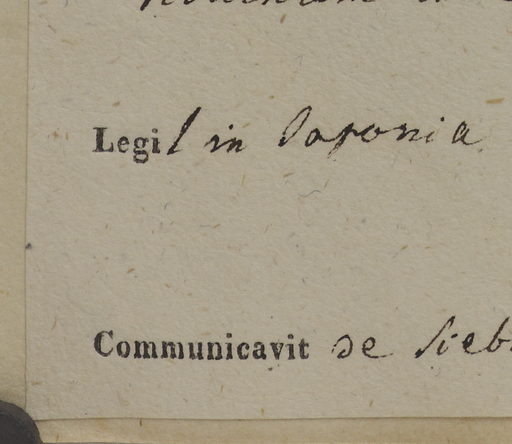 Legit in Japonia
Communicavit de Sieb